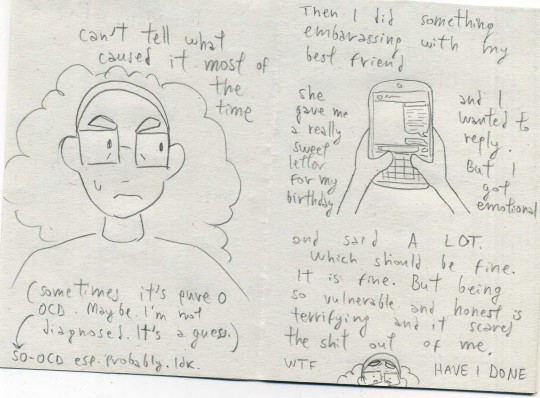 can't tell what
caused it most of
the
time
(sometimes it's pure O
OCD. Maybe. I'm not
diagnosed. It's a guess.)
SO-OCD esp. probably. Idk.
Then I did something
embarassing with my
best friend
she
gave me
a really
sweet
letter
for my
birthday
and I
wanted to
reply.
But I
got
emotional
and said A LOT.
Which should be fine.
It is fine. But being
so vulnerable and honest is
terrifying and it scared
the shit out of me.
WTF HAVE I DONE